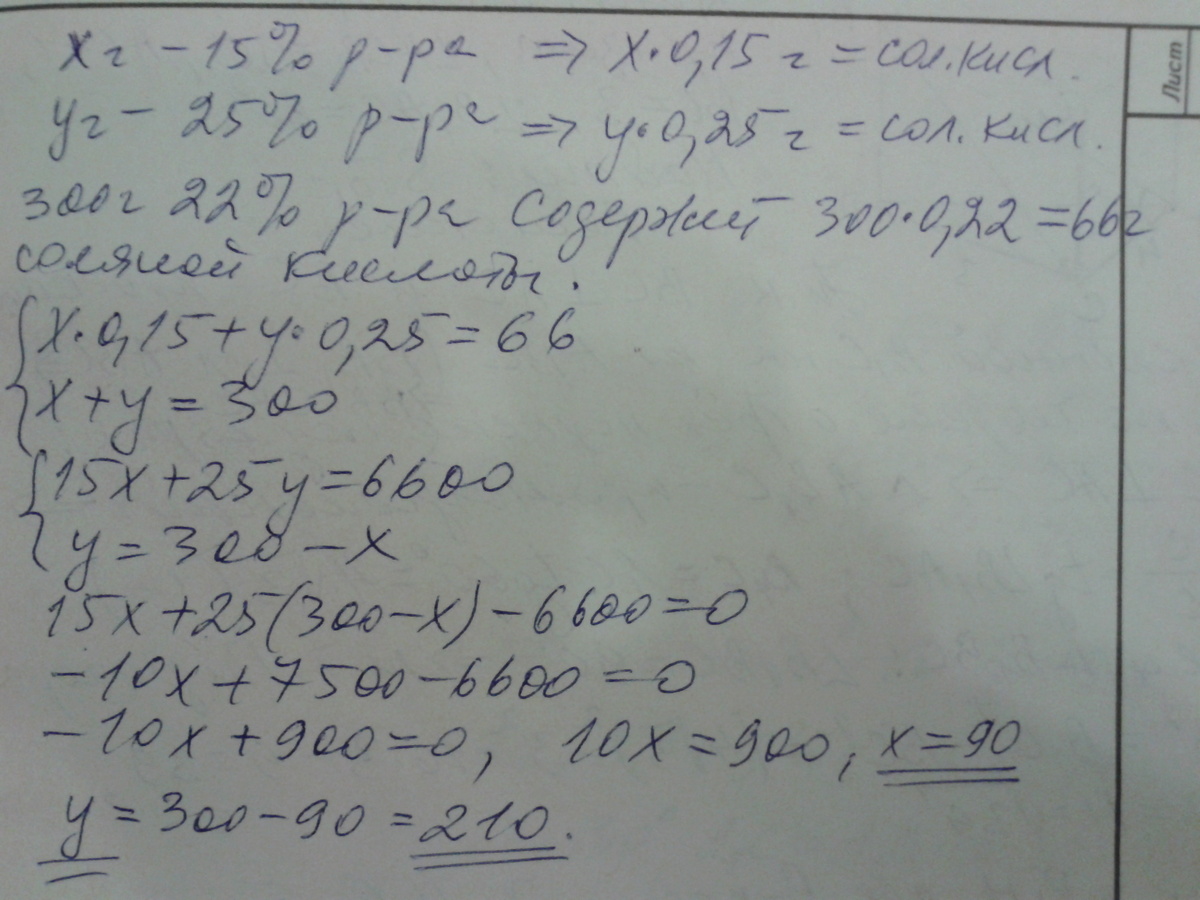 Хг – 15% р-ра => X·0,15 г = сол.кисл.
Уг – 25% р-ра => y·0,25 г = сол. кисл.
300г 22% р-ра содержит 300·0,22 = 66г
соляной кислоты.
X·0,15 + y·0,25 = 66
X + y = 300
15x + 25y = 6600
y = 300 – X
15x + 25(300 – x) – 6600 = 0
– 10x + 7500 – 6600 = 0
– 10x + 900 = 0, 10x = 900, x = 90
y = 300 – 90 = 210.
Лист